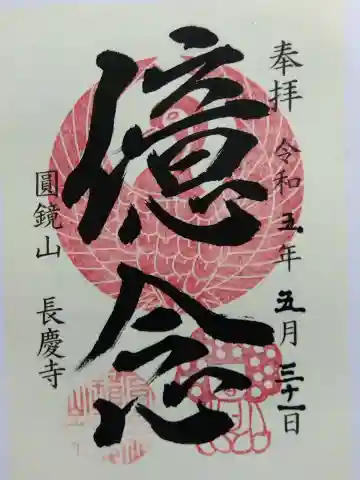 奉拝
令和五年五月三十一日
億念
圓鏡山 長慶寺